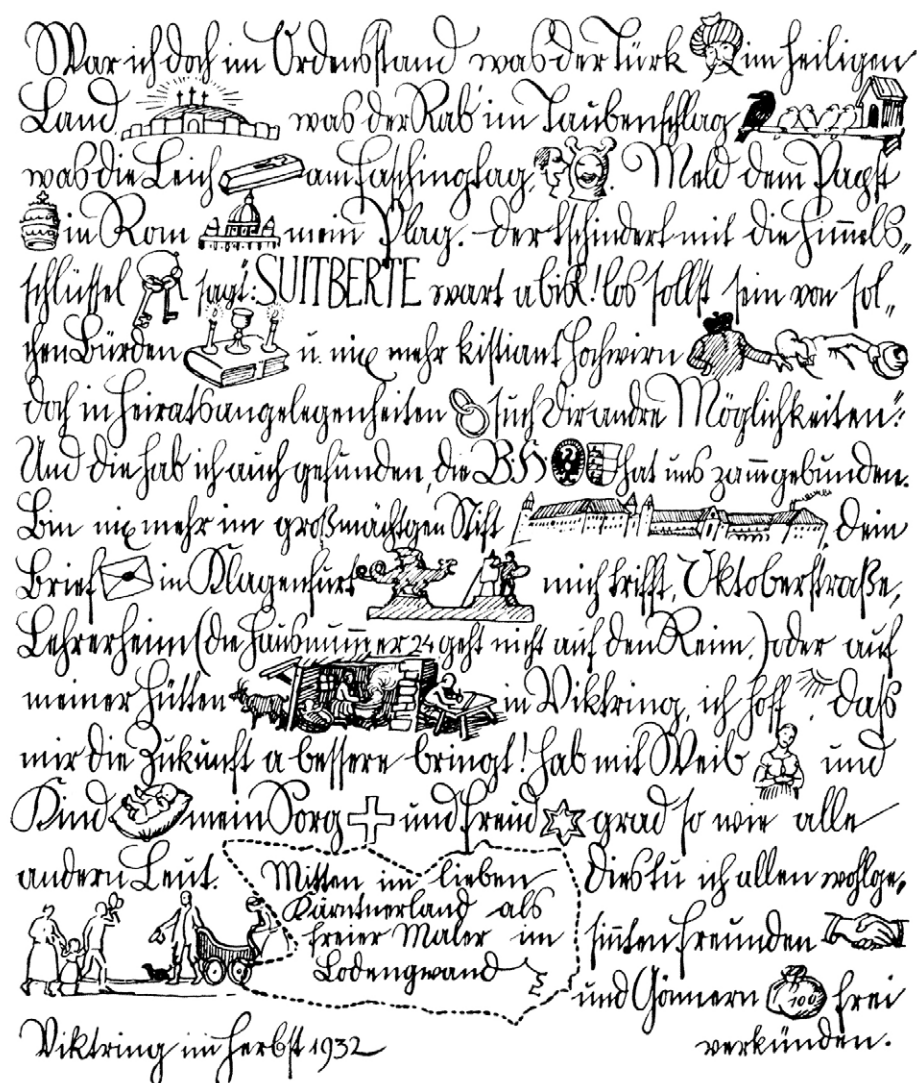 War ich doch im Ordensstand was der Türk im heiligen
Land was der Rab' im Taubenschlag
was die Leich am Faschingtag. Meld dem Papst
in Rom mein Plag. Der tschindert mit die Himels„
schlüssel sagt: „SUITBERTE wart a bißl! los sollst sein von sol„
chen Bürden u. nix mehr kistiant hochwirn
doch in Heiratsangelegenheiten such Dir andre Möglichkeiten“:
Und die hab ich auch gefunden, die B.H. hat uns zamgebunden.
Bin nix mehr im großmächtgen Stift, Dein
Brief in Klagenfurt mich trifft, Oktoberstraße,
Lehrerheim (die Hausnummer 24 geht nicht auf den Reim,) oder auf
meiner Hütten in Viktring, ich hoff, daß
mir die Zukunft a bessere bringt! Hab mit Weib und
Kind mein Sorg und Freud grad so wie alle
andern Leut.
Mitten im lieben
Kärntnerland als
freier Maler im
Lodengwand
Dies tu ich allen wohlge„
sinten Freunden
und Gönnern 100 frei
verkünden.
Viktring im Herbst 1932